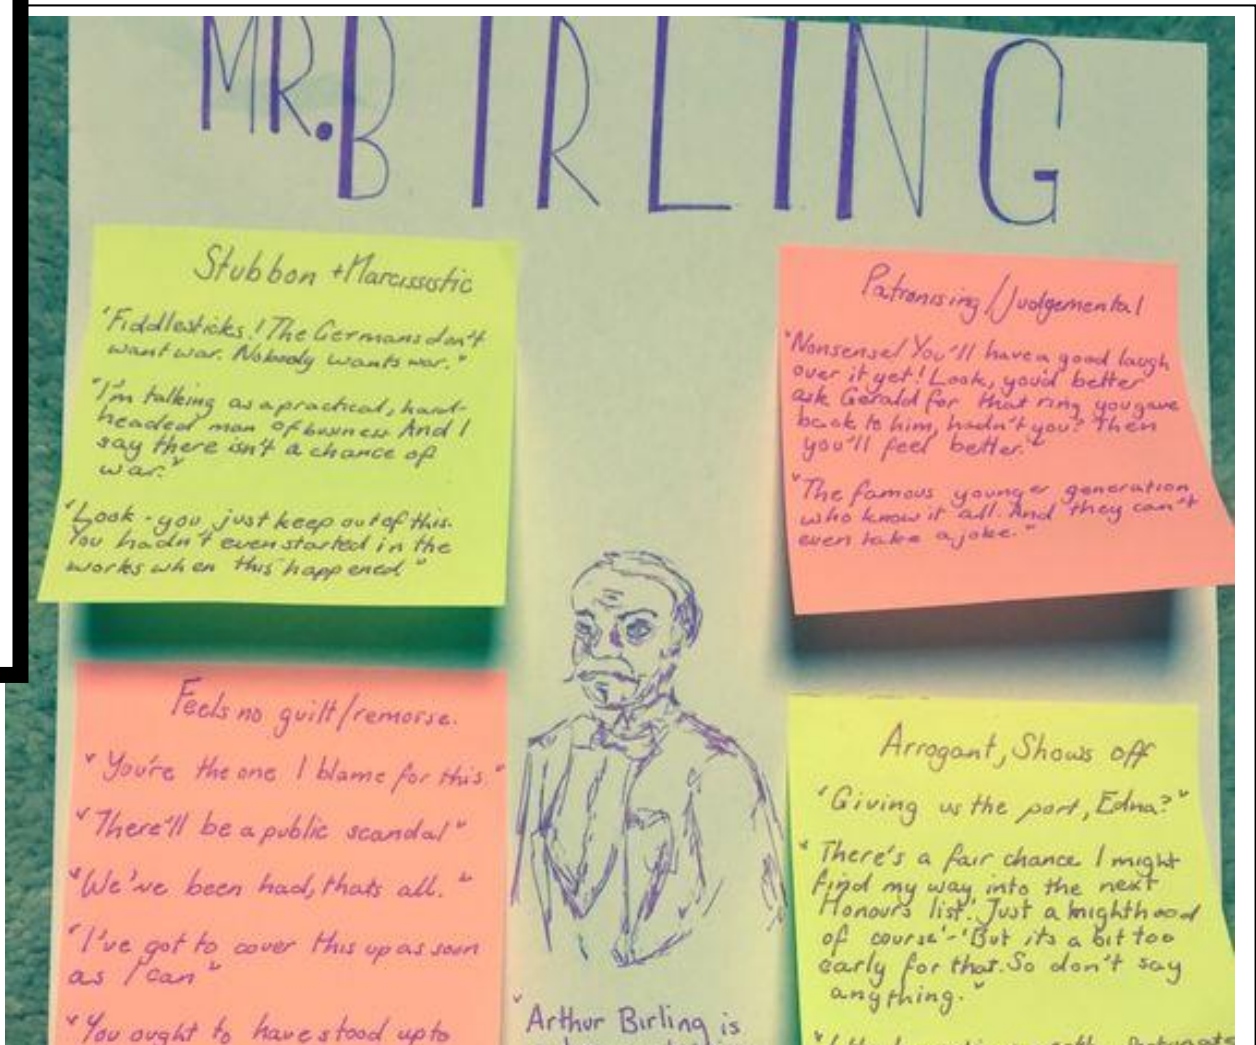 MR. BIRLING
Stubbon + Narcissistic
"Fiddlesticks! The Germans don't
want war. Nobody wants war."
"I'm talking as a practical, hard-
headed man of business And I
say there isn't a chance of
war."
"Look - you just keep out of this.
You hadn't even started in the
works when this happened"
Patronising/Judgemental
"Nonsense! You'll have a good laugh
over it yet! Look, you'd better
ask Gerald for that ring you gave
back to him, hadn't you? Then
you'll feel better."
"The famous younger generation
who know it all. And they can't
even take a joke."
Feels no guilt/remorse.
"You're the one I blame for this."
"There'll be a public scandal"
"We've been had, thats all."
"I've got to cover this up as soon
as I can"
"You ought to have stood up to
Arrogant, Shows off
"Giving us the port, Edna?"
"There's a fair chance I might
find my way into the next
Honours list. Just a knighthood
of course' - 'But its a bit too
early for that. So don't say
anything."
"Arthur Birling is